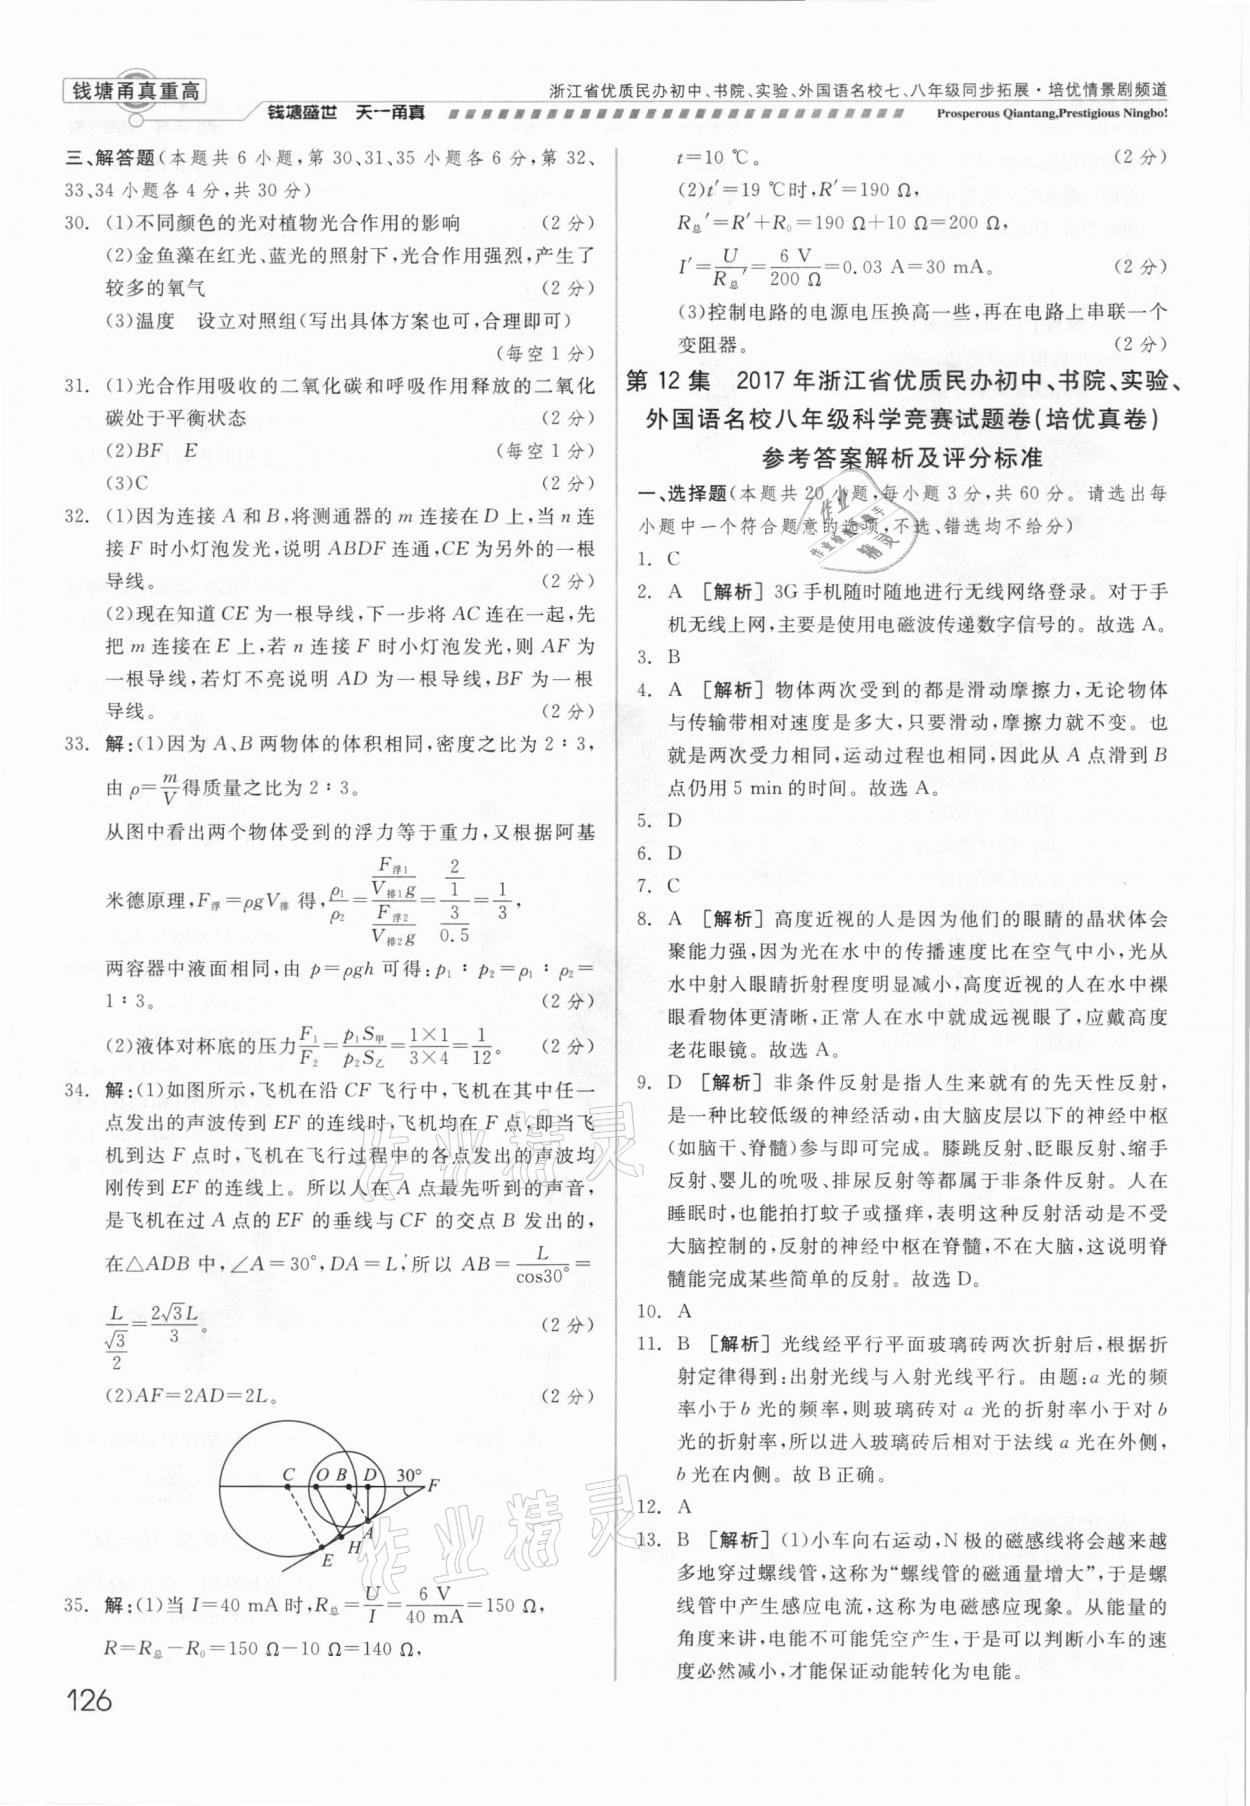 钱塘甬真重高
钱塘盛世 天一甬真
浙江省优质民办初中、书院、实验、外国语名校七、八年级同步拓展·培优情景剧频道
Prosperous Qiantang,Prestigious Ningbo!
三、解答题(本题共 6 小题,第 30、31、35 小题各 6 分,第 32、
33、34 小题各 4 分,共 30 分)
30. (1)不同颜色的光对植物光合作用的影响 (2 分)
(2)金鱼藻在红光、蓝光的照射下,光合作用强烈,产生了
较多的氧气 (2 分)
(3)温度 设立对照组(写出具体方案也可,合理即可)
(每空 1 分)
31. (1)光合作用吸收的二氧化碳和呼吸作用释放的二氧化
碳处于平衡状态 (2 分)
(2)BF E (每空 1 分)
(3)C (2 分)
32. (1)因为连接 A 和 B,将测通器的 m 连接在 D 上,当 n 连
接 F 时小灯泡发光,说明 ABDF 连通,CE 为另外的一根
导线。 (2 分)
(2)现在知道 CE 为一根导线,下一步将 AC 连在一起,先
把 m 连接在 E 上,若 n 连接 F 时小灯泡发光,则 AF 为
一根导线,若灯不亮说明 AD 为一根导线,BF 为一根
导线。 (2 分)
33. 解:(1)因为 A、B 两物体的体积相同,密度之比为 2∶3,
由 ρ=m/V 得质量之比为 2∶3。
从图中看出两个物体受到的浮力等于重力,又根据阿基
米德原理,F浮=ρgV排 得,ρ₁/ρ₂=(F浮1/V排1g)/(F浮2/V排2g)=(2/1)/(3/0.5)=1/3,
两容器中液面相同,由 p=ρgh 可得:p₁∶p₂=ρ₁∶ρ₂=
1∶3。 (2 分)
(2)液体对杯底的压力F₁/F₂=p₁S甲/p₂S乙=1×1/3×4=1/12。 (2 分)
34. 解:(1)如图所示,飞机在沿 CF 飞行中,飞机在其中任一
点发出的声波传到 EF 的连线时,飞机均在 F 点,即当飞
机到达 F 点时,飞机在飞行过程中的各点发出的声波均
刚传到 EF 的连线上。所以人在 A 点最先听到的声音,
是飞机在过 A 点的 EF 的垂线与 CF 的交点 B 发出的,
在△ADB 中,∠A=30°,DA=L,所以 AB=L/cos30°=
L/(√3/2)=2√3L/3。 (2 分)
(2)AF=2AD=2L。 (2 分)
C O B D 30° F
A
H
E
35. 解:(1)当 I=40 mA 时,R总=U/I=6 V/40 mA=150 Ω,
R=R总-R₀=150 Ω-10 Ω=140 Ω,
126
t=10 ℃。 (2 分)
(2)t′=19 ℃时,R′=190 Ω,
R总′=R′+R₀=190 Ω+10 Ω=200 Ω,
I′=U/R总′=6 V/200 Ω=0.03 A=30 mA。 (2 分)
(3)控制电路的电源电压换高一些,再在电路上串联一个
变阻器。 (2 分)
第 12 集 2017 年浙江省优质民办初中、书院、实验、
外国语名校八年级科学竞赛试题卷(培优真卷)
参考答案解析及评分标准
一、选择题(本题共 20 小题,每小题 3 分,共 60 分。请选出每
小题中一个符合题意的选项,不选、错选均不给分)
1. C
2. A [解析]3G 手机随时随地进行无线网络登录。对于手
机无线上网,主要是使用电磁波传递数字信号的。故选 A。
3. B
4. A [解析]物体两次受到的都是滑动摩擦力,无论物体
与传输带相对速度是多大,只要滑动,摩擦力就不变。也
就是两次受力相同,运动过程也相同,因此从 A 点滑到 B
点仍用 5 min 的时间。故选 A。
5. D
6. D
7. C
8. A [解析]高度近视的人是因为他们的眼睛的晶状体会
聚能力强,因为光在水中的传播速度比在空气中小,光从
水中射入眼睛折射程度明显减小,高度近视的人在水中裸
眼看物体更清晰,正常人在水中就成远视眼了,应戴高度
老花眼镜。故选 A。
9. D [解析]非条件反射是指人生来就有的先天性反射,
是一种比较低级的神经活动,由大脑皮层以下的神经中枢
(如脑干、脊髓)参与即可完成。膝跳反射、眨眼反射、缩手
反射、婴儿的吮吸、排尿反射等都属于非条件反射。人在
睡眠时,也能拍打蚊子或搔痒,表明这种反射活动是不受
大脑控制的,反射的神经中枢在脊髓,不在大脑,这说明脊
髓能完成某些简单的反射。故选 D。
10. A
11. B [解析]光线经平行平面玻璃砖两次折射后,根据折
射定律得到:出射光线与入射光线平行。由题:a 光的频
率小于 b 光的频率,则玻璃砖对 a 光的折射率小于对 b
光的折射率,所以进入玻璃砖后相对于法线 a 光在外侧,
b 光在内侧。故 B 正确。
12. A
13. B [解析](1)小车向右运动,N 极的磁感线将会越来越
多地穿过螺线管,这称为“螺线管的磁通量增大”,于是螺
线管中产生感应电流,这称为电磁感应现象。从能量的
角度来讲,电能不可能凭空产生,于是可以判断小车的速
度必然减小,才能保证动能转化为电能。
作业精灵
作业精灵